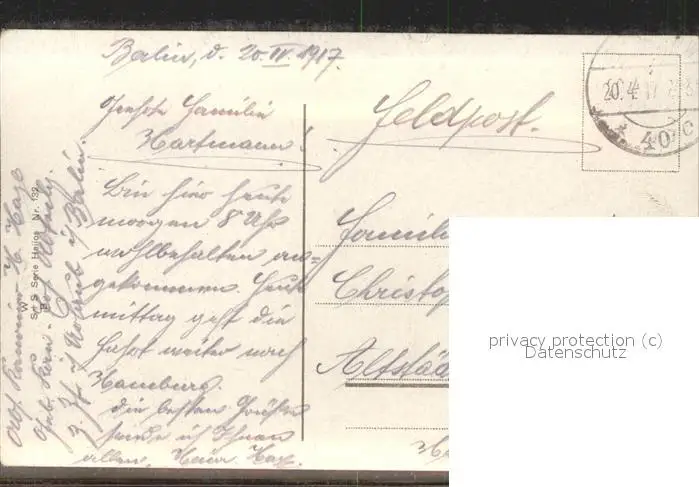 Berlin, d. 20.IV.1917.
Geehrte Familie
Hartmann!
Bin hier heute
morgen 8 Uhr
wohlbehalten an-
gekommen. Heut
mittag geht die
Fahrt weiter nach
Hamburg.
die besten Grüße
sende ich Ihnen
allen,
Feldpost.
20.4.17
Famili
Christop
Altstäd
Abs.
z. Zt.
Berlin.
S+S Serie Helios Nr. 132
W B
privacy protection (c)
Datenschutz